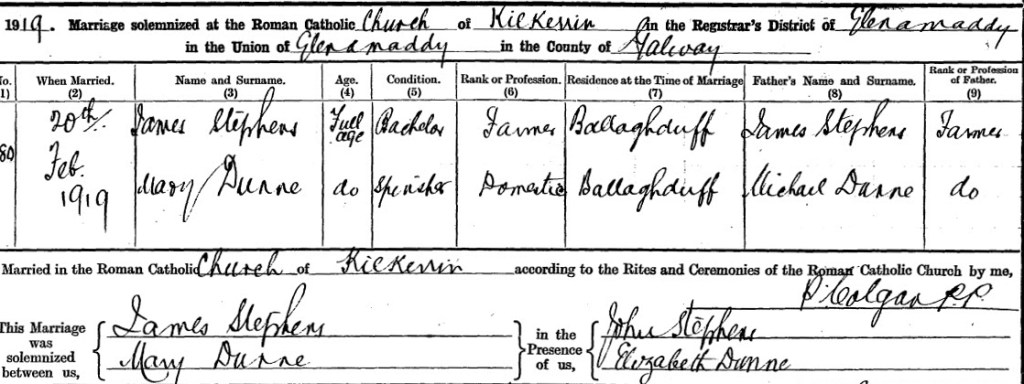 1919. Marriage solemnized at the Roman Catholic Church of Kilkerrin in the Registrar's District of Glenamaddy
in the Union of Glenamaddy in the County of Galway
No. When Married. Name and Surname. Age. Condition. Rank or Profession. Residence at the Time of Marriage Father's Name and Surname. Rank or Profession of Father.
(1) (2) (3) (4) (5) (6) (7) (8) (9)
20th James Stephens Full age Bachelor Farmer Ballaghduff James Stephens Farmer
80 Feb.
1919 Mary Dunne do Spinster Domestic Ballaghduff Michael Dunne do
Married in the Roman Catholic Church of Kilkerrin according to the Rites and Ceremonies of the Roman Catholic Church by me,
P. Colgan P.P.
This Marriage was solemnized between us, James Stephens in the Presence of us, John Stephens
Mary Dunne Elizabeth Dunne